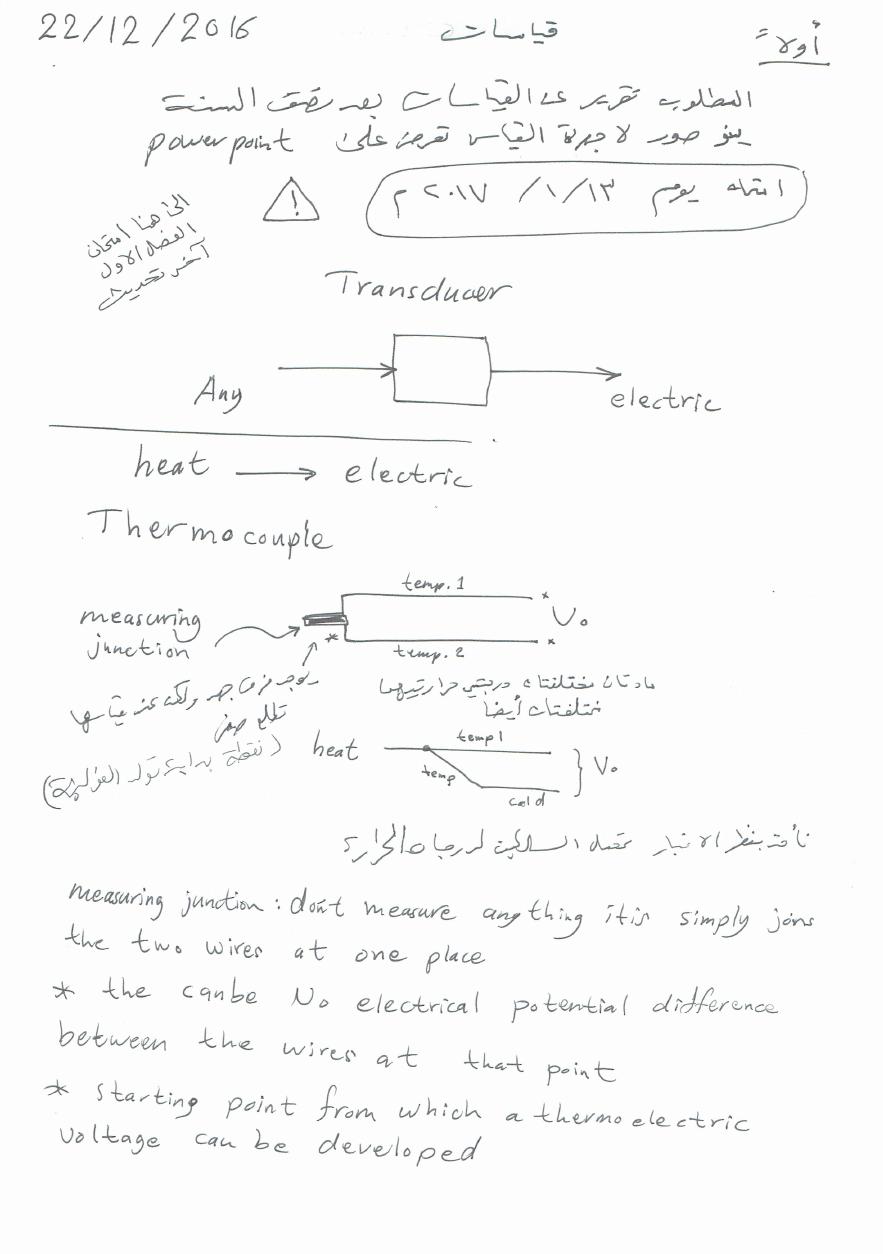 22/12/2016
قياسات
أولاً
المطلوب تقرير عن القياسات بعد نصف السنة
صور لاجهزة القياس تعرض على powerpoint
انتهاء يوم ١٣/١/٢٠١٧ م
!
الى هنا امتحان
الفصل الاول
آخر تحديث
Transducer
Any
electric
heat → electric
Thermocouple
temp. 1
measuring
junction
*
Vo
temp. 2
مادتان مختلفتان درجتي حرارتيهما
مختلفتان أيضاً
يوجد فرق جهد ولكن عند قياسها
تطلع صفر
(نقطة بداية تولد الفولتية)
heat
temp1
temp
cold
Vo
بنظر الاعتبار تحمل السلكين لدرجات الحرارة
measuring junction : don't measure anything itis simply jons
the two wires at one place
* the canbe No electrical potential difference
between the wires at that point
* starting point from which a thermoelectric
voltage can be developed